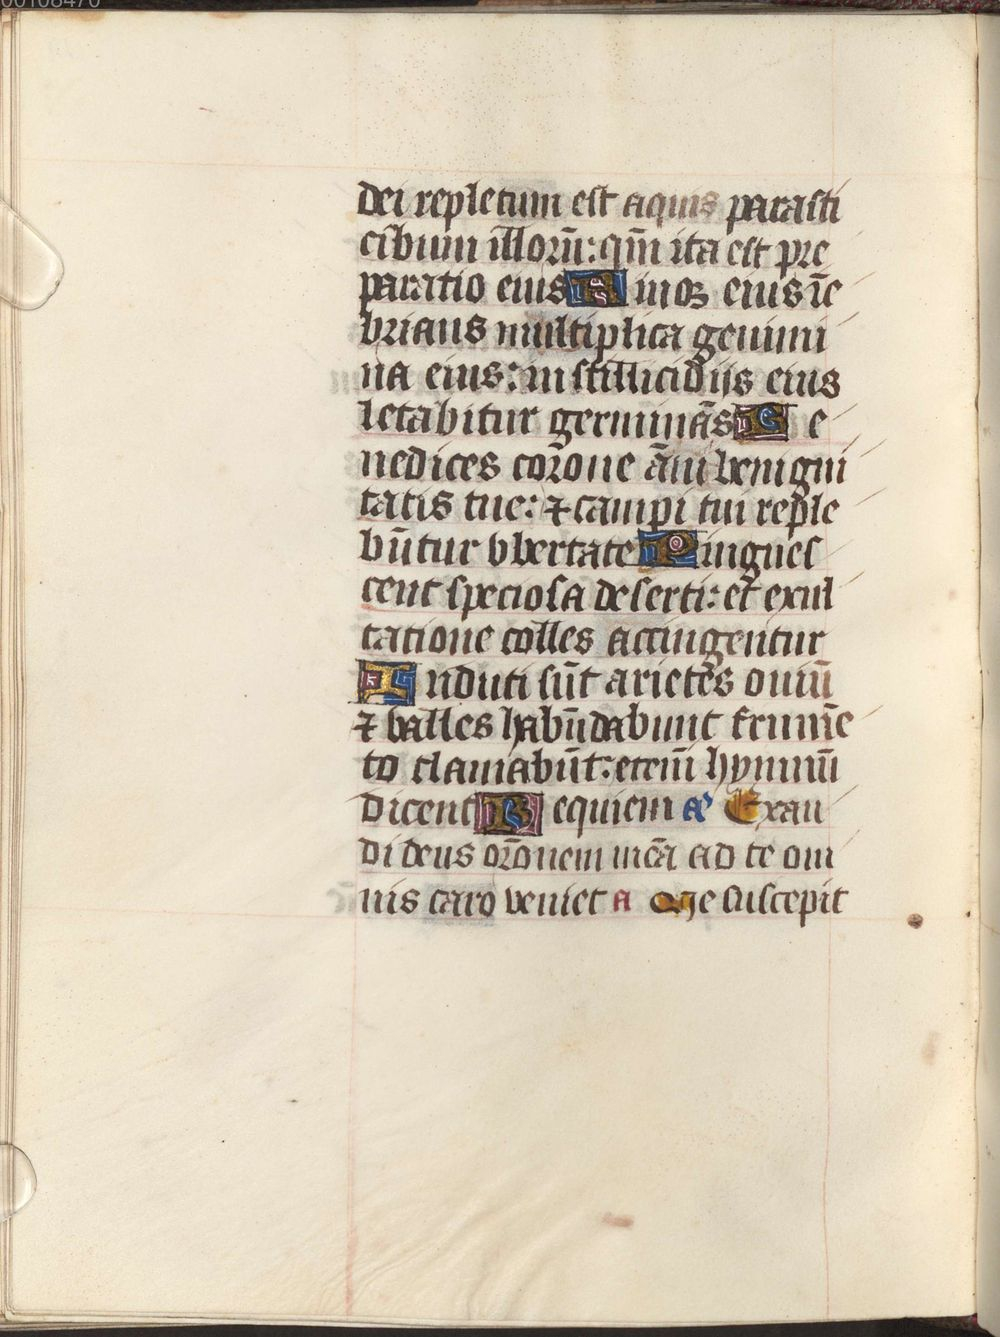 00108470
dei repletum est aquis parasti
cibum illoru᷑: qm̃ ita est pre
paratio eius Riuos eius ĩe
brians multiplica genimi
na eius: in stillicidijs eius
letabitur germinãs Be
nedices corõne ãni benigni
tatis tue: ⁊ campi tui reple
bũtur vbertate Pingues
cent speciosa deserti: et exul
tatione colles accingentur
Induti sũt arietes ouiũ
⁊ valles habũdabunt frume᷑
to clamabũt: etem̃ hymnũ
dicent Requiem a᷑ Exau
di deus orõnem meã ad te om
nis caro veniet a Me suscepit